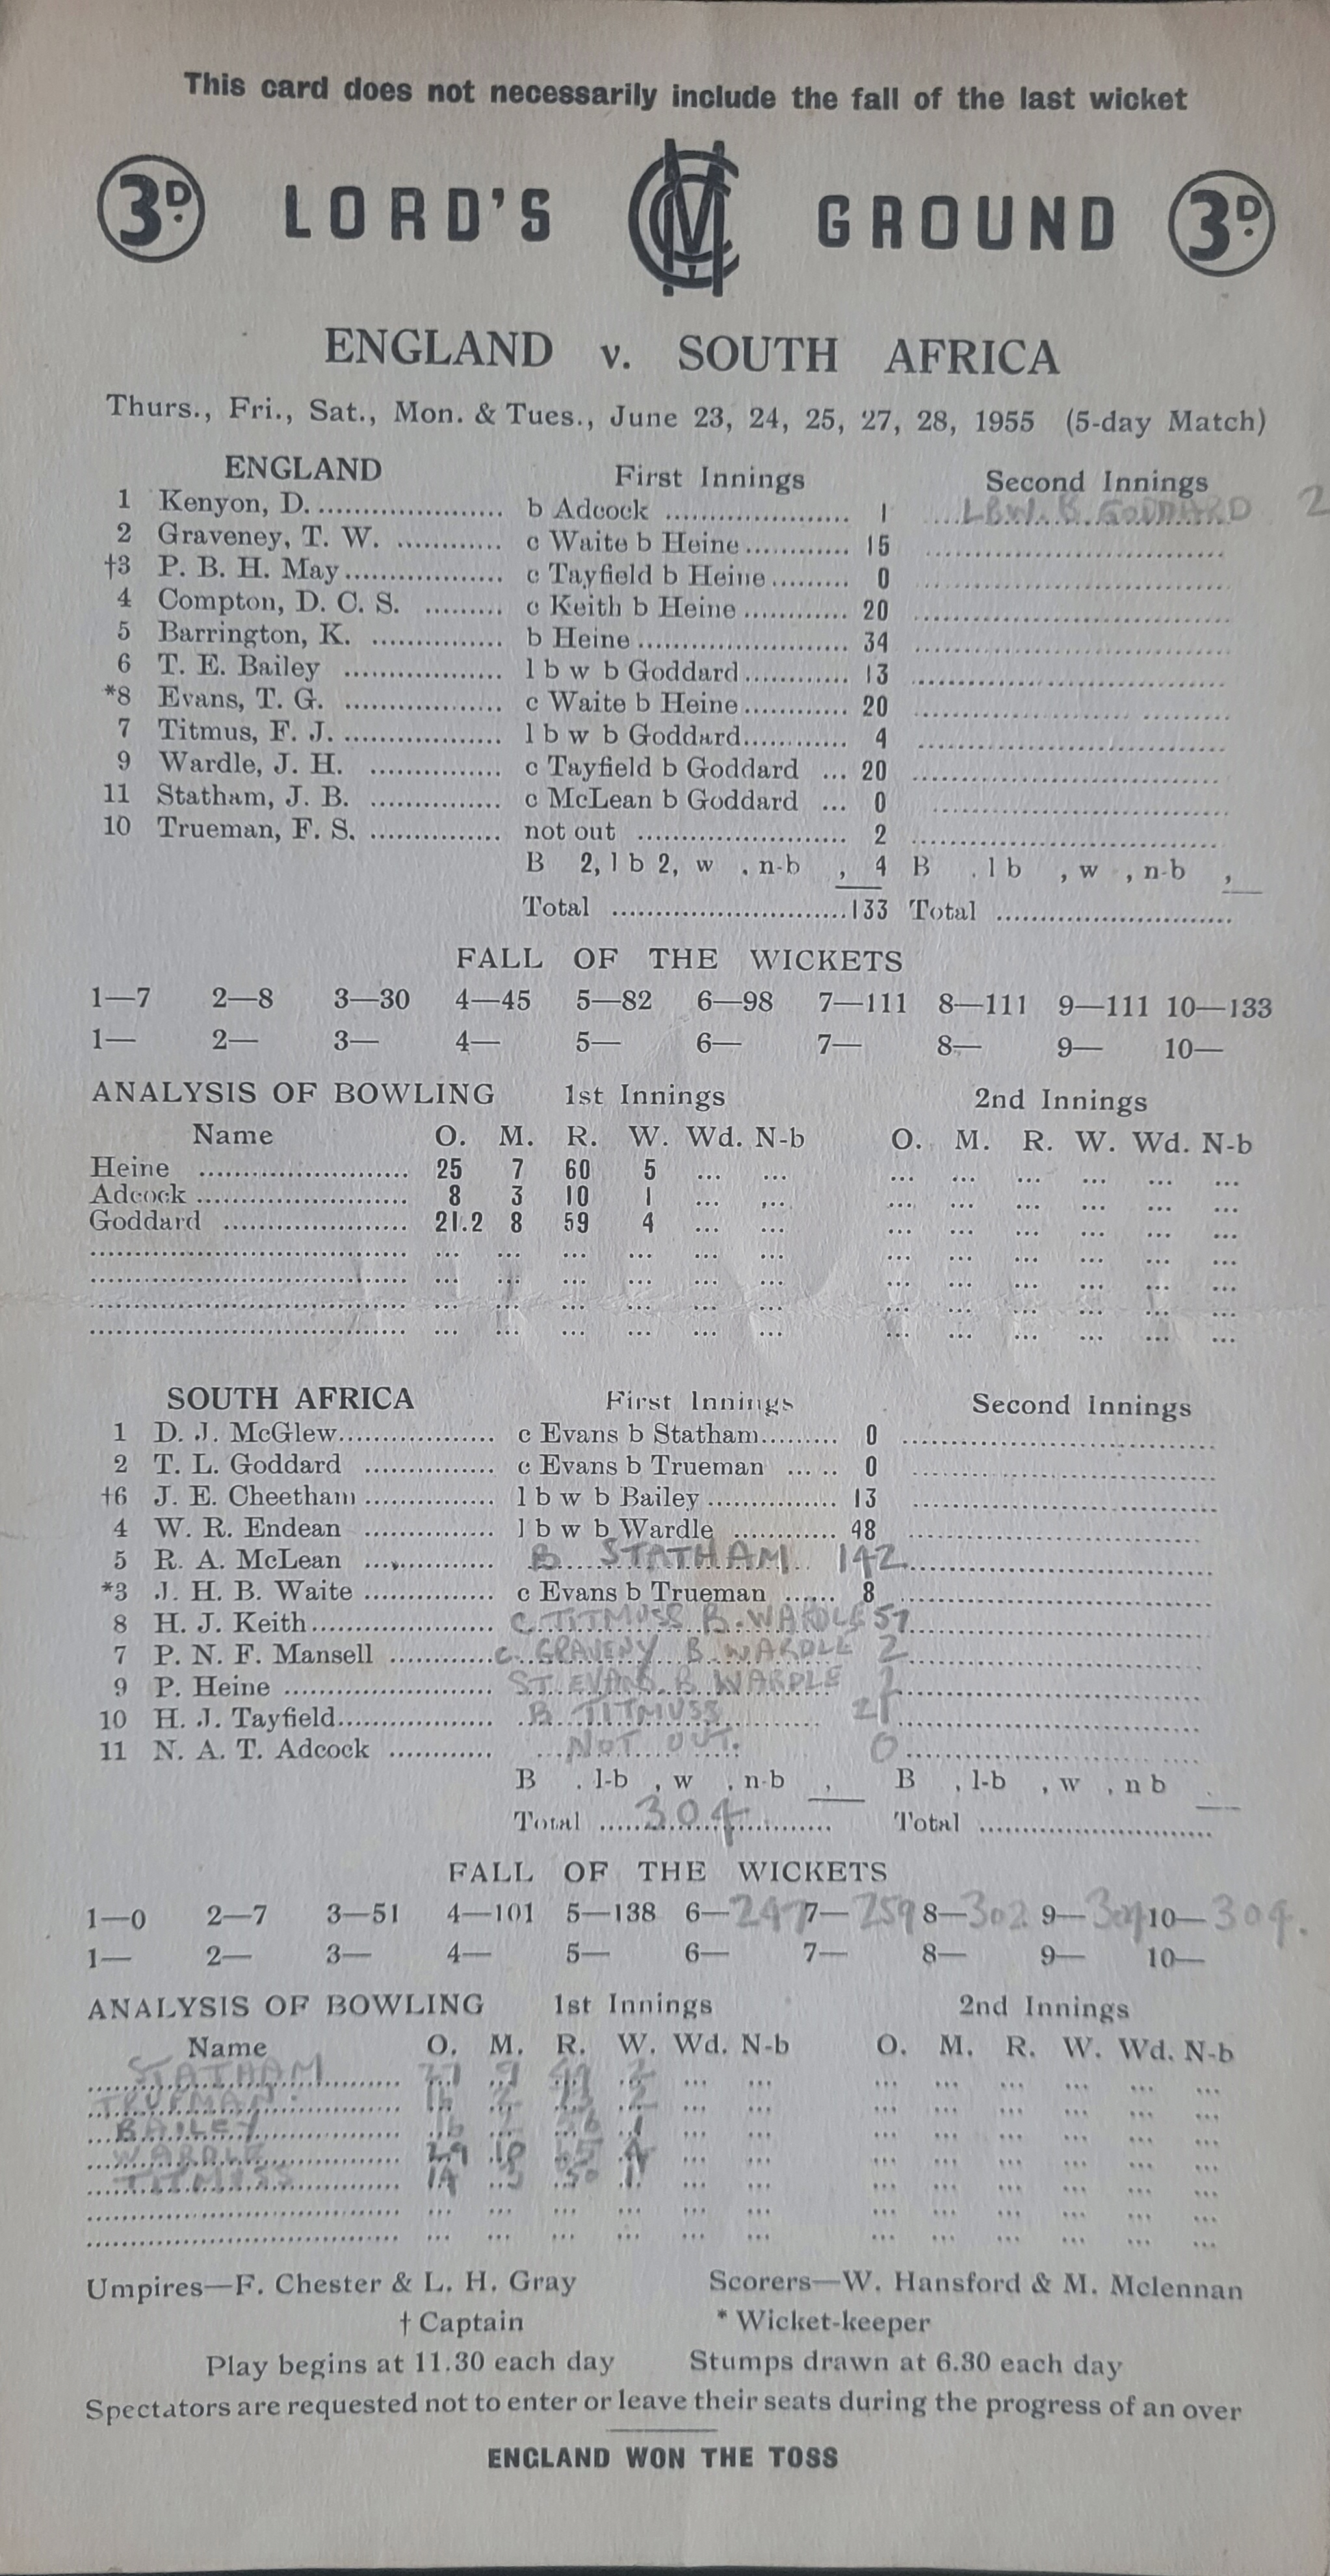 This card does not necessarily include the fall of the last wicket
3D. LORD'S MCC GROUND 3D.
ENGLAND v. SOUTH AFRICA
Thurs., Fri., Sat., Mon. & Tues., June 23, 24, 25, 27, 28, 1955 (5-day Match)
ENGLAND First Innings Second Innings
1 Kenyon, D. b Adcock 1 LBW. B. GODDARD 2
2 Graveney, T. W. c Waite b Heine 15
†3 P. B. H. May c Tayfield b Heine 0
4 Compton, D. C. S. c Keith b Heine 20
5 Barrington, K. b Heine 34
6 T. E. Bailey l b w b Goddard 13
*8 Evans, T. G. c Waite b Heine 20
7 Titmus, F. J. l b w b Goddard 4
9 Wardle, J. H. c Tayfield b Goddard ... 20
11 Statham, J. B. c McLean b Goddard ... 0
10 Trueman, F. S. not out 2
B 2, l b 2, w , n-b , 4 B , l b , w , n-b ,
Total 133 Total
FALL OF THE WICKETS
1—7 2—8 3—30 4—45 5—82 6—98 7—111 8—111 9—111 10—133
1— 2— 3— 4— 5— 6— 7— 8— 9— 10—
ANALYSIS OF BOWLING 1st Innings 2nd Innings
Name O. M. R. W. Wd. N-b O. M. R. W. Wd. N-b
Heine 25 7 60 5
Adcock 8 3 10 1
Goddard 21.2 8 59 4
SOUTH AFRICA First Innings Second Innings
1 D. J. McGlew c Evans b Statham 0
2 T. L. Goddard c Evans b Trueman 0
†6 J. E. Cheetham l b w b Bailey 13
4 W. R. Endean l b w b Wardle 48
5 R. A. McLean B STATHAM 142
*3 J. H. B. Waite c Evans b Trueman 8
8 H. J. Keith C. TITMUSS B. WARDLE 57
7 P. N. F. Mansell C. GRAVENY B WARDLE 2
9 P. Heine ST. EVANS. B WARDLE 2
10 H. J. Tayfield B TITMUSS 21
11 N. A. T. Adcock NOT OUT. 0
B , l-b , w , n-b , B , l-b , w , n b
Total 304 Total
FALL OF THE WICKETS
1—0 2—7 3—51 4—101 5—138 6—247 7—259 8—302 9—304 10—304.
1— 2— 3— 4— 5— 6— 7— 8— 9— 10—
ANALYSIS OF BOWLING 1st Innings 2nd Innings
Name O. M. R. W. Wd. N-b O. M. R. W. Wd. N-b
STATHAM
TRUEMAN
BAILEY 1
WARDLE 29 10 4
TITMUSS 14 3 50 1
Umpires—F. Chester & L. H. Gray Scorers—W. Hansford & M. Mclennan
† Captain * Wicket-keeper
Play begins at 11.30 each day Stumps drawn at 6.30 each day
Spectators are requested not to enter or leave their seats during the progress of an over
ENGLAND WON THE TOSS